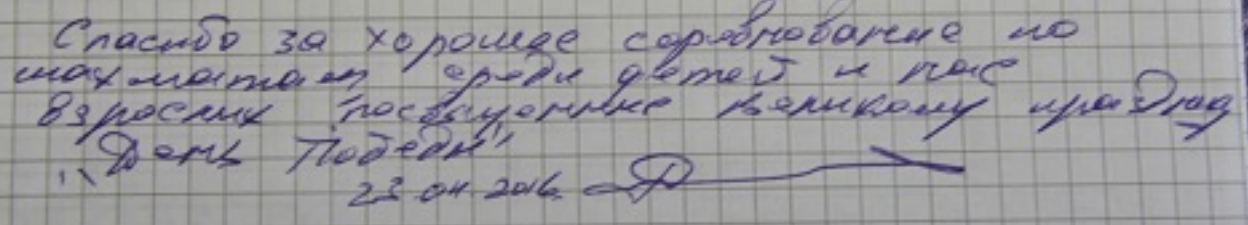 Спасибо за хорошее соревнование по
шахматам, среди детей и нас
взрослых посвященные великому празднику
„День Победы"
23.04.2016